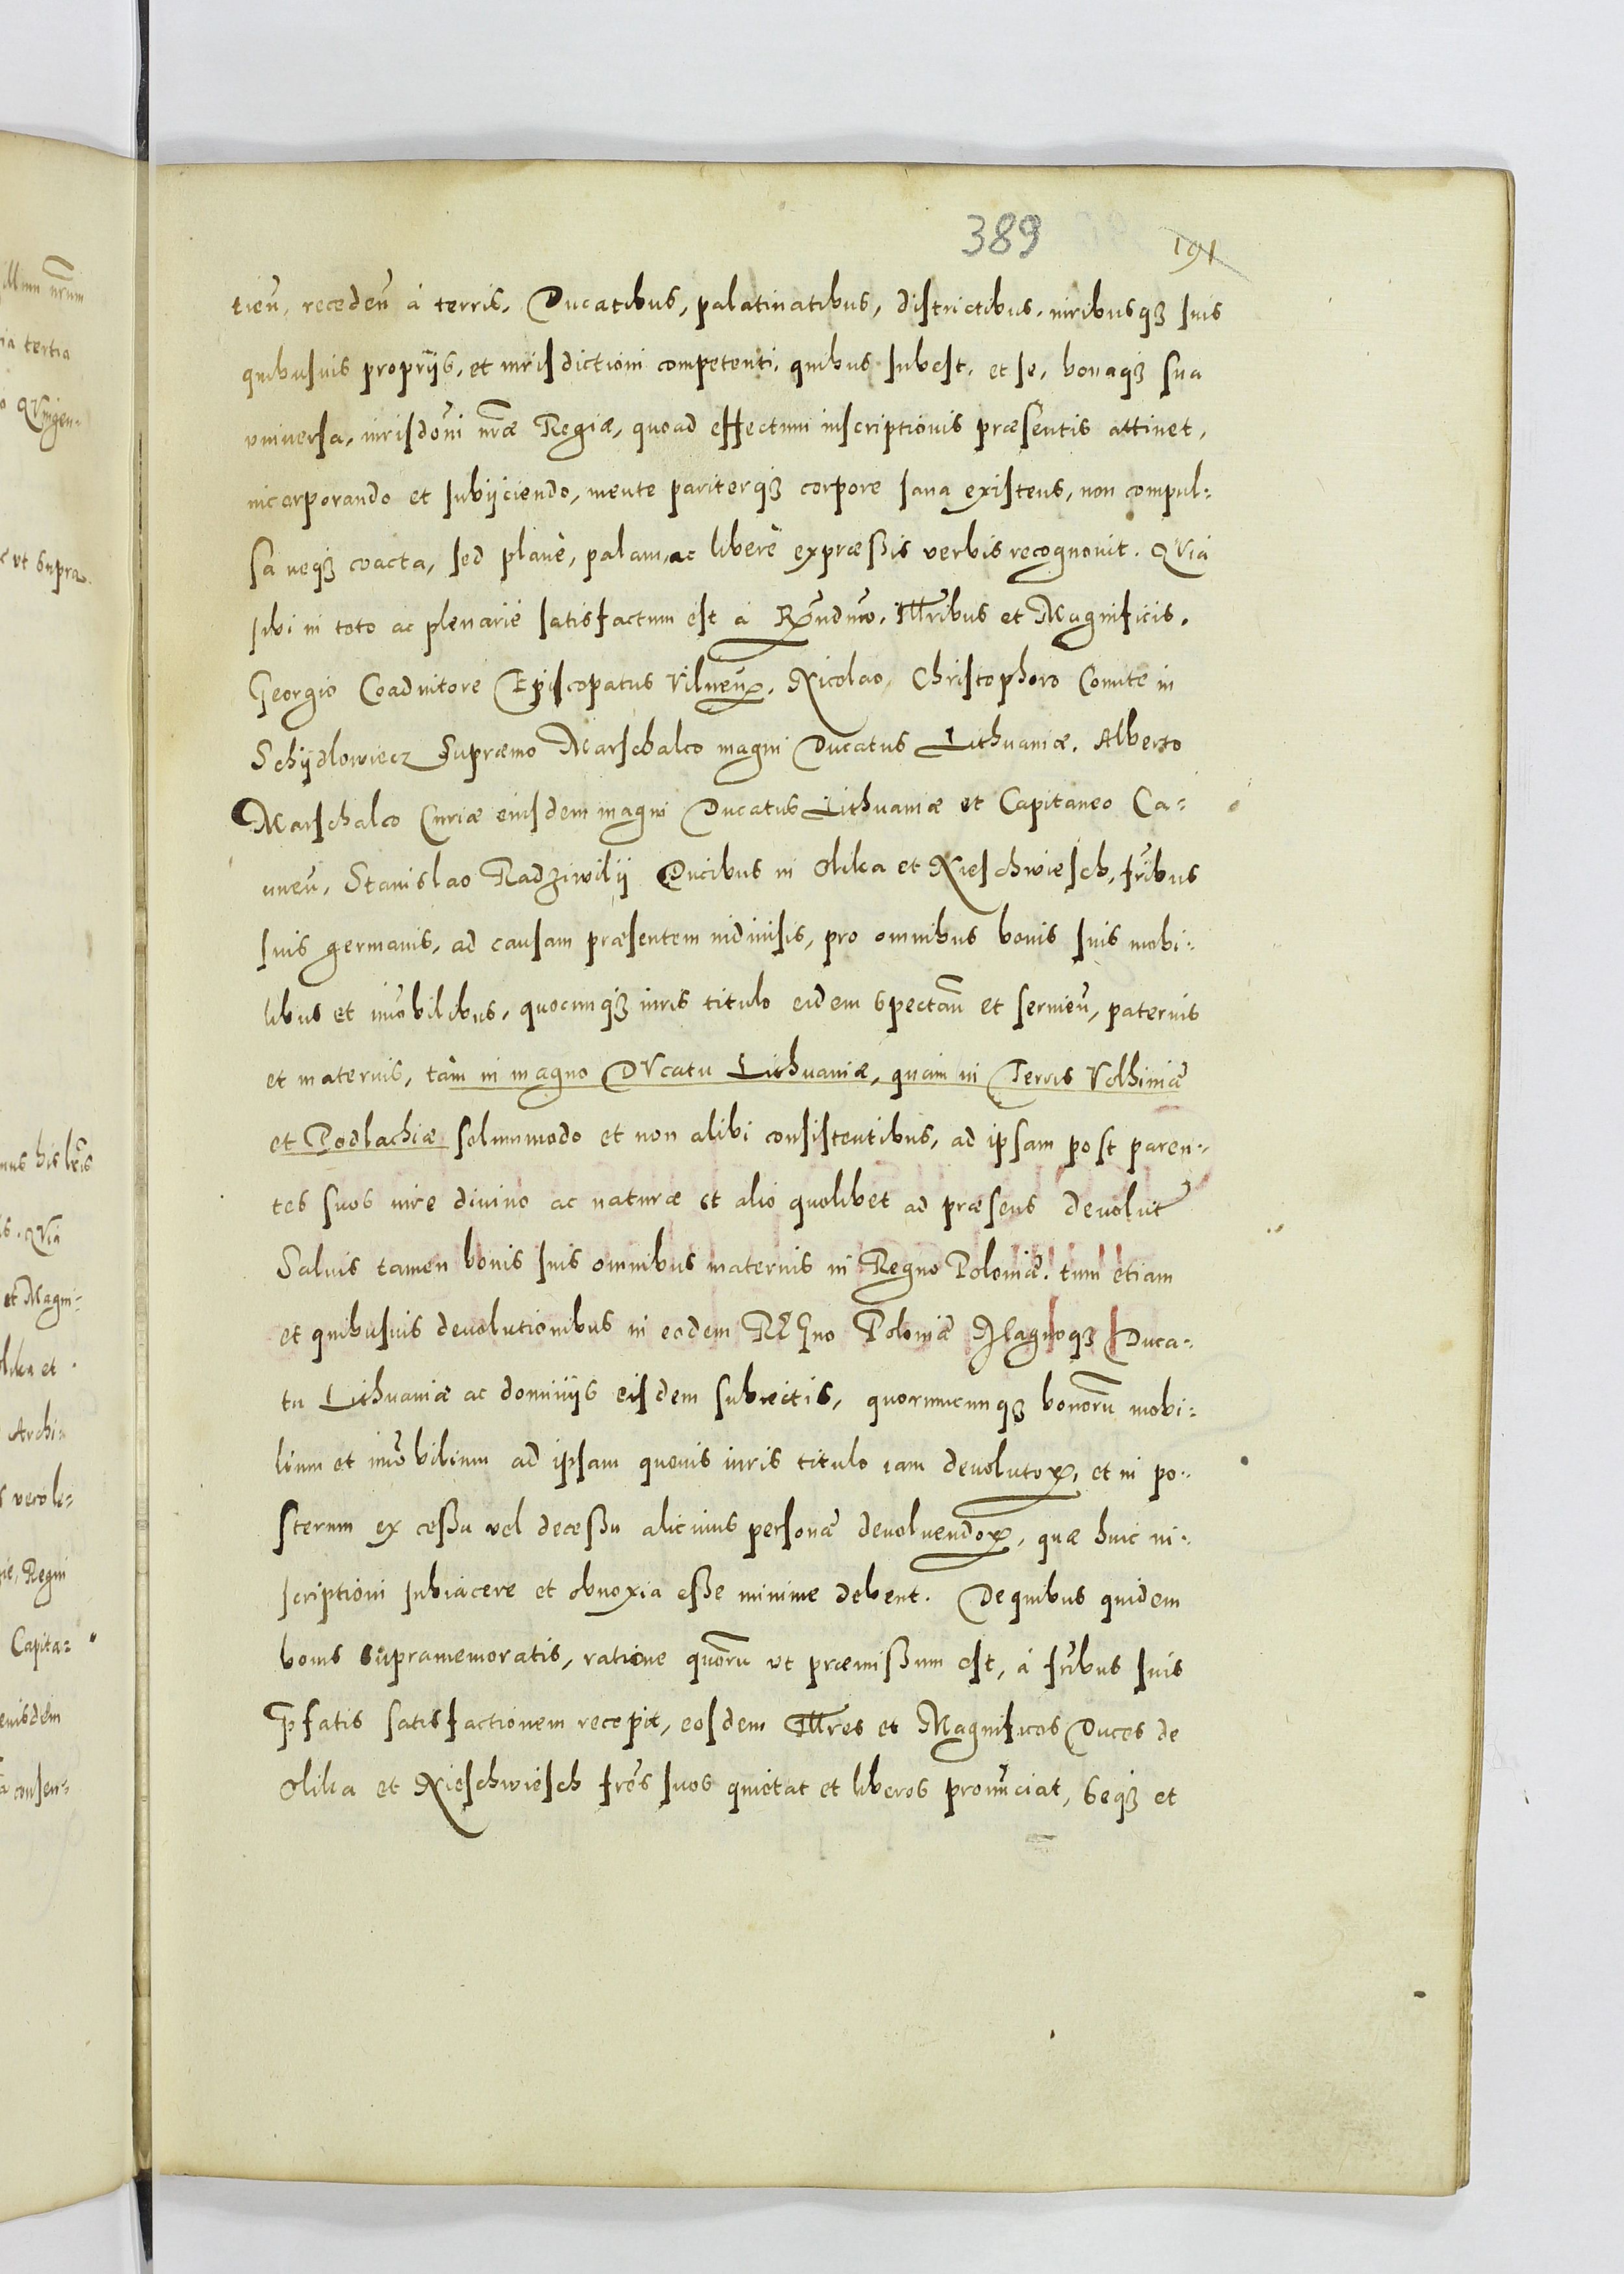 389 191
tien̄, receden̄ à terris, Ducatibus, palatinatibus, districtibus, iuribusq̃ suis
quibusuis proprijs, et iurisdictioni competenti, quibus subest, et se, bonaq̃ sua
vniuersa, iurisdōni nr̄æ Regiæ, quoad effectum inscriptionis præsentis attinet,
incorporando et subijciendo, mente pariterq̃ corpore sana existens, non compul=
sa neq̃ coacta, sed planè, palam, ac liberè expræßis verbis recognouit. QVia
sibi in toto ac plenariè satisfactum est à Rn̄dmo, Illr̄ibus et Magnificis,
Georgio Coadiutore Episcopatus Vilnen̄, Nicolao, Christophoro Comite in
Schijdlowiecz Supræmo Marschalco magni Ducatus Lithuaniæ, Alberto
Marschalco Curiæ eiusdem magni Ducatus Lithuaniæ et Capitaneo Ca=
unen̄, Stanislao Radziwilij Ducibus in Olika et Nieschwiesch, fr̄ibus
suis germanis, ad causam præsentem indiuisis, pro omnibus bonis suis mobi=
libus et im̄obilibus, quocunq̃ iuris titulo eidem spectan̄ et seruien̄, paternis
et maternis, tàm in magno DVcatu Lithuaniæ, quàm in Terris Volhiniæ
et Podlachiæ solummodo et non alibi consistentibus, ad ipsam post paren=
tes suos iure diuino ac naturæ et alio quolibet ad præsens deuolut̄
Saluis tamen bonis suis omnibus maternis in Regno Poloniæ, tum etiam
et quibusuis deuolutionibus in eodem REGno Poloniæ Magnoq̃ Duca=
tu Lithuaniæ ac dominijs eisdem subiectis, quorumcunq̃ bonorū mobi=
lium et im̄obilium ad ipsam quouis iuris titulo iam deuolutoꝝ, et in po=
sterum ex ceßu vel deceßu alicuius personæ deuoluendoꝝ, quæ huic in=
scriptioni subiacere et obnoxia eße minime debent. De quibus quidem
bonis supramemoratis, ratione quorū vt præmißum est, à fr̄ibus suis
p̄fatis satisfactionem recepit, eosdem Illr̄es et Magnificos Duces de
Olika et Nieschwiesch fr̄es suos quietat et liberos pronūciat, seq̃ et